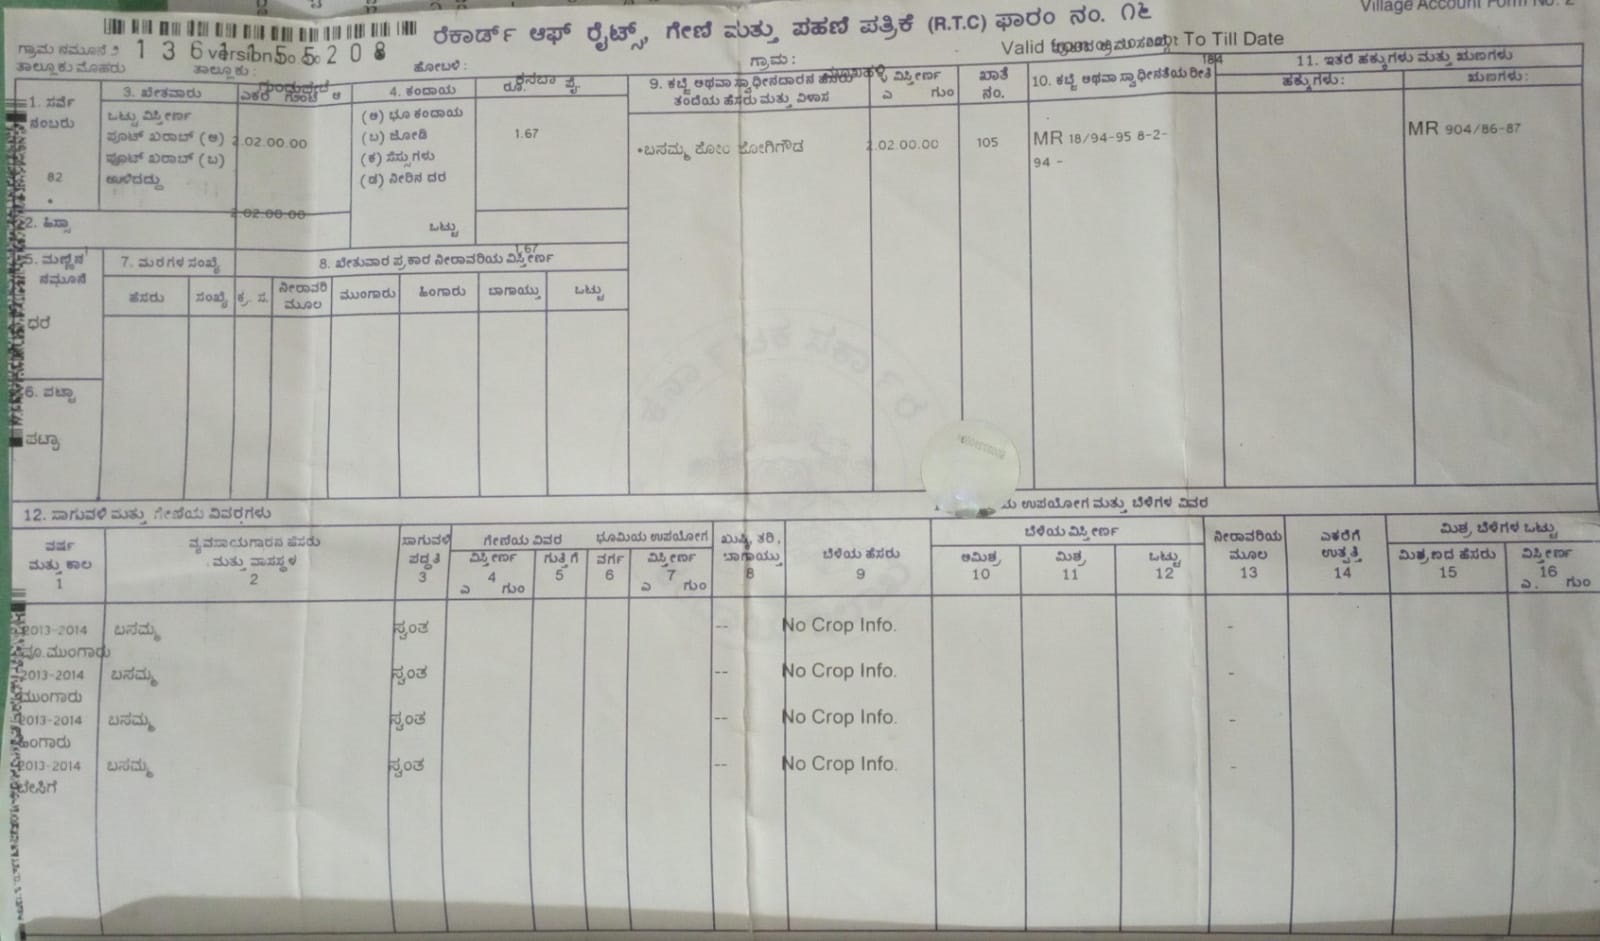 Village Account Form No. 2
ರೆಕಾರ್ಡ್ ಆಫ್ ರೈಟ್ಸ್, ಗೇಣಿ ಮತ್ತು ಪಹಣಿ ಪತ್ರಿಕೆ (R.T.C) ಫಾರಂ ನಂ. ೧೬
ಗ್ರಾಮ ನಮೂನೆ ೨
Valid To Till Date
ತಾಲ್ಲೂಕು: ಹೋಬಳಿ: ಗ್ರಾಮ:
1. ಸರ್ವೆ ನಂಬರು
82
*
2. ಹಿಸ್ಸಾ
3. ಖೇತವಾರು ಎಕರೆ ಗುಂಟೆ ಆ
ಒಟ್ಟು ವಿಸ್ತೀರ್ಣ
ಪೂಟ್ ಖರಾಬ್ (ಅ) 2.02.00.00
ಪೂಟ್ ಖರಾಬ್ (ಬ)
ಉಳಿದದ್ದು
2.02.00.00
4. ಕಂದಾಯ ರೂ. ಪೈ.
(ಅ) ಭೂ ಕಂದಾಯ
(ಬ) ಜೋಡಿ 1.67
(ಕ) ಸೆಸ್ಸುಗಳು
(ಡ) ನೀರಿನ ದರ
ಒಟ್ಟು
1.67
5. ಮಣ್ಣಿನ ನಮೂನೆ
6. ಪಟ್ಟಾ
ಪಟ್ಟಾ
7. ಮರಗಳ ಸಂಖ್ಯೆ
ಹೆಸರು ಸಂಖ್ಯೆ
8. ಖೇತುವಾರ ಪ್ರಕಾರ ನೀರಾವರಿಯ ವಿಸ್ತೀರ್ಣ
ಕ್ರ. ಸ. ನೀರಾವರಿ ಮೂಲ ಮುಂಗಾರು ಹಿಂಗಾರು ಬಾಗಾಯ್ತು ಒಟ್ಟು
9. ಕಬ್ಜೆ ಅಥವಾ ಸ್ವಾಧೀನದಾರನ ಹೆಸರು
ತಂದೆಯ ಹೆಸರು ಮತ್ತು ವಿಳಾಸ
ವಿಸ್ತೀರ್ಣ
ಎ ಗುಂ
ಖಾತೆ ನಂ.
ಬಸಮ್ಮ ಕೋಂ ಜೋಗಿಗೌಡ 2.02.00.00 105
10. ಕಬ್ಜೆ ಅಥವಾ ಸ್ವಾಧೀನತೆಯ ರೀತಿ
MR 18/94-95 8-2-
94 -
11. ಇತರೆ ಹಕ್ಕುಗಳು ಮತ್ತು ಋಣಗಳು
ಹಕ್ಕುಗಳು: ಋಣಗಳು:
MR 904/86-87
12. ಸಾಗುವಳಿ ಮತ್ತು ಗೇಣಿಯ ವಿವರಗಳು
ಉಪಯೋಗ ಮತ್ತು ಬೆಳೆಗಳ ವಿವರ
ವರ್ಷ ಮತ್ತು ಕಾಲ 1
ವ್ಯವಸಾಯಗಾರನ ಹೆಸರು ಮತ್ತು ವಾಸಸ್ಥಳ 2
ಸಾಗುವಳಿ ಪದ್ಧತಿ 3
ಗೇಣಿಯ ವಿವರ
ವಿಸ್ತೀರ್ಣ 4 ಎ ಗುಂ
ಗುತ್ತಿಗೆ 5
ಭೂಮಿಯ ಉಪಯೋಗ
ವರ್ಗ 6
ವಿಸ್ತೀರ್ಣ 7 ಎ ಗುಂ
ಖುಷ್ಕಿ, ತರಿ, ಬಾಗಾಯ್ತು 8
ಬೆಳೆಯ ಹೆಸರು 9
ಬೆಳೆಯ ವಿಸ್ತೀರ್ಣ
ಅಮಿಶ್ರ 10 ಮಿಶ್ರ 11 ಒಟ್ಟು 12
ನೀರಾವರಿಯ ಮೂಲ 13
ಎಕರೆಗೆ ಉತ್ಪತ್ತಿ 14
ಮಿಶ್ರ ಬೆಳೆಗಳ ಒಟ್ಟು
ಮಿಶ್ರಣದ ಹೆಸರು 15
ವಿಸ್ತೀರ್ಣ 16 ಎ. ಗುಂ
2013-2014 ಬಸಮ್ಮ ಸ್ವಂತ -- No Crop Info. -
ಪೂ.ಮುಂಗಾರು
2013-2014 ಬಸಮ್ಮ ಸ್ವಂತ -- No Crop Info. -
ಮುಂಗಾರು
2013-2014 ಬಸಮ್ಮ ಸ್ವಂತ -- No Crop Info. -
ಹಿಂಗಾರು
2013-2014 ಬಸಮ್ಮ ಸ್ವಂತ -- No Crop Info. -
ಬೇಸಿಗೆ